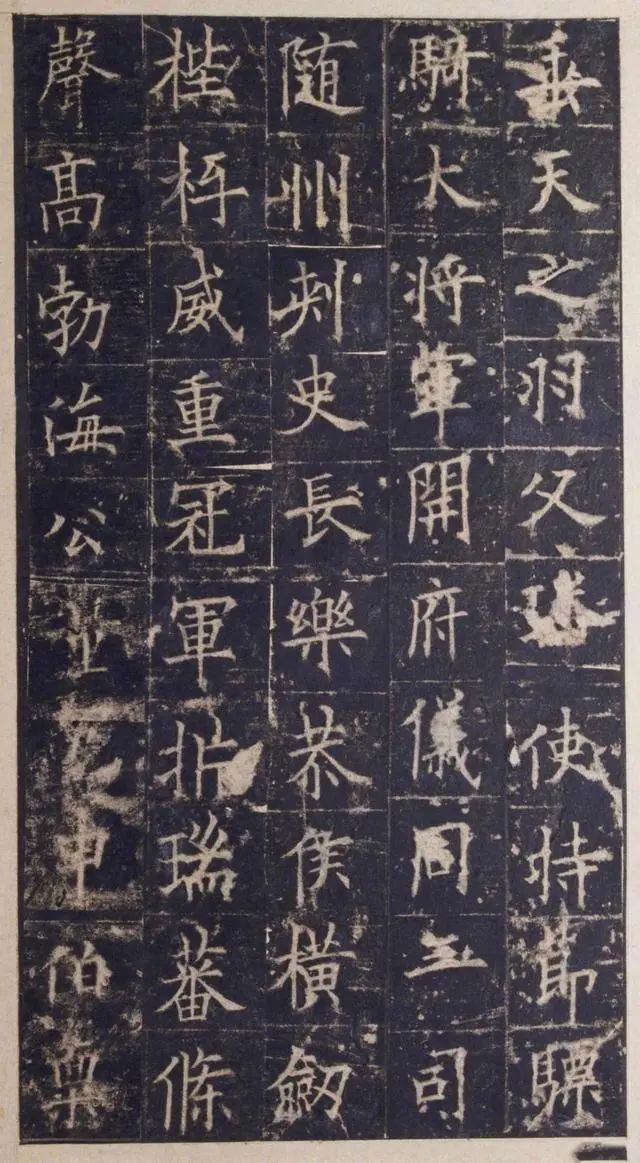 垂天之羽父璠使持節驃
騎大將軍開府儀同三司
随州刺史長樂恭侯橫劒
梐枑威重冠軍析瑞蕃條
聲高勃海公申伯稟